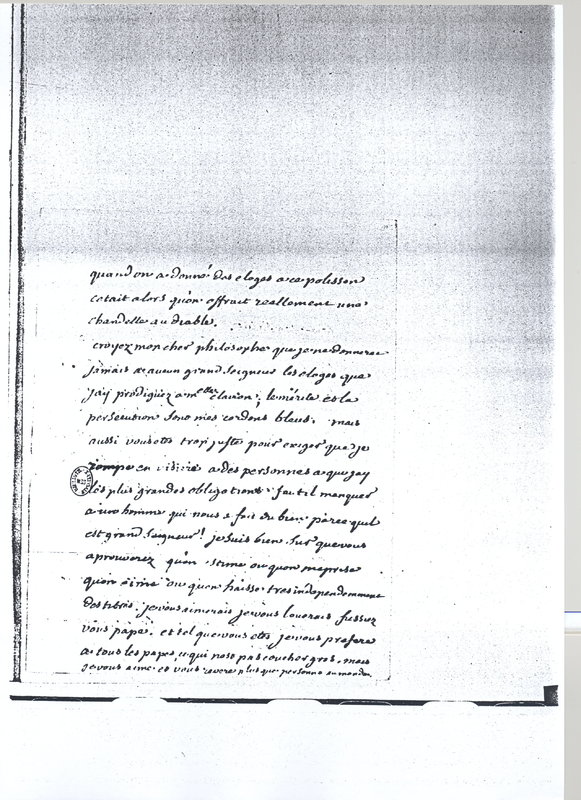 quand on a donné des eloges a ce polisson
cetait alors qu'on offrait reellement une
chandelle au diable.
croyez mon cher philosophe que je ne donnerai
jamais a aucun grand seigneur les eloges que
jay prodiguez a m<sup>elle</sup> clairon; le mérite et la
persecution sont mes cordons bleus. mais
aussi vous etes trop juste pour exiger que je
rompe en visiere a des personnes a qui jay
les plus grandes obligations. faut il manquer
a un homme qui nous a fait du bien parce quil
est grand seigneur! je suis bien sur que vous
aprouverez qu'on estime ou quon meprise
quon aime ou quon haisse tres independemment
des titres. je vous aimerais je vous louerais fussiez
vous pape. et tel que vous etes je vous prefere
a tous les papes, ce qui n'est pas coucher gros. mais
je vous aime et vous revere plus que personne au monde.